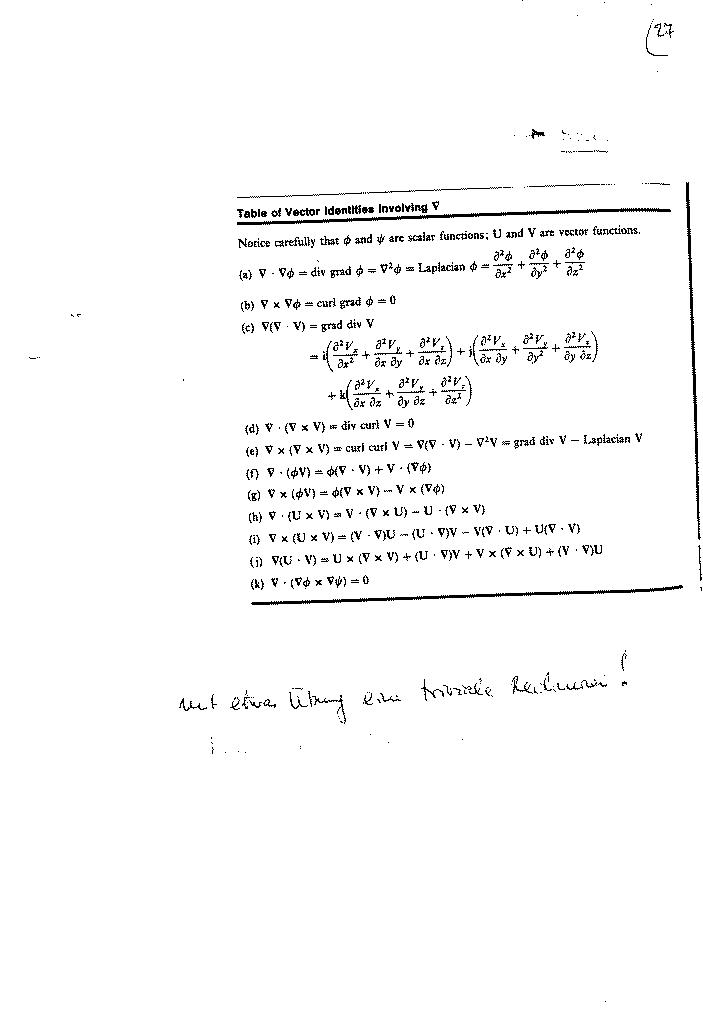 (27
Table of Vector Identities Involving ∇
Notice carefully that ϕ and ψ are scalar functions; U and V are vector functions.
(a) ∇ · ∇ϕ = div grad ϕ = ∇²ϕ = Laplacian ϕ = ∂²ϕ/∂x² + ∂²ϕ/∂y² + ∂²ϕ/∂z²
(b) ∇ × ∇ϕ = curl grad ϕ = 0
(c) ∇(∇ · V) = grad div V
= i(∂²Vₓ/∂x² + ∂²V_y/∂x ∂y + ∂²V_z/∂x ∂z) + j(∂²Vₓ/∂x ∂y + ∂²V_y/∂y² + ∂²V_z/∂y ∂z)
+ k(∂²Vₓ/∂x ∂z + ∂²V_y/∂y ∂z + ∂²V_z/∂z²)
(d) ∇ · (∇ × V) = div curl V = 0
(e) ∇ × (∇ × V) = curl curl V = ∇(∇ · V) − ∇²V = grad div V − Laplacian V
(f) ∇ · (ϕV) = ϕ(∇ · V) + V · (∇ϕ)
(g) ∇ × (ϕV) = ϕ(∇ × V) − V × (∇ϕ)
(h) ∇ · (U × V) = V · (∇ × U) − U · (∇ × V)
(i) ∇ × (U × V) = (V · ∇)U − (U · ∇)V − V(∇ · U) + U(∇ · V)
(j) ∇(U · V) = U × (∇ × V) + (U · ∇)V + V × (∇ × U) + (V · ∇)U
(k) ∇ · (∇ϕ × ∇ψ) = 0
mit etwas Übung eine triviale !